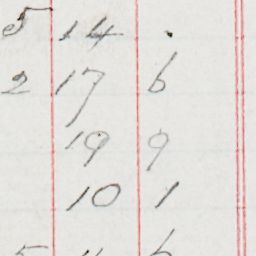 5 14 .
2 17 6
19 9
10 1